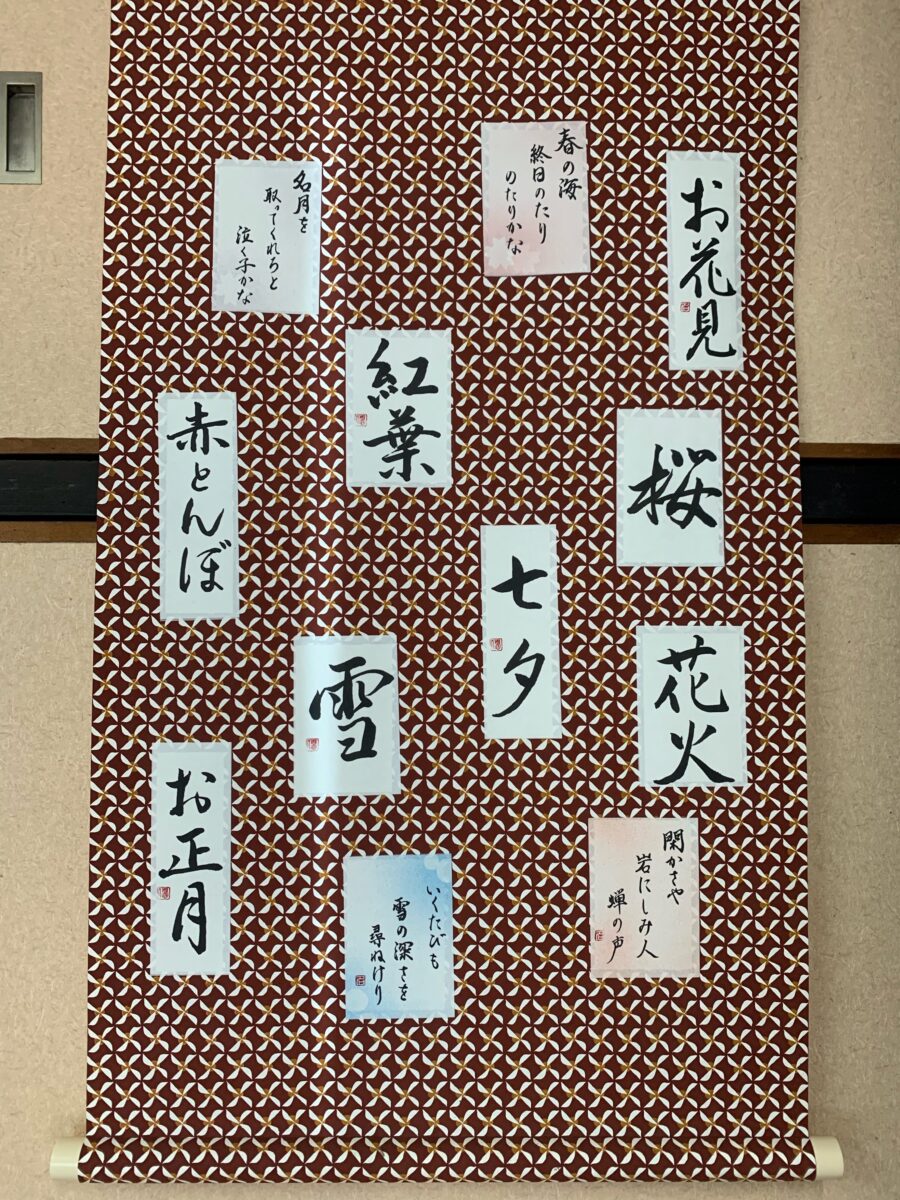 お花見
春の海
終日のたり
のたりかな
桜
花火
七夕
閑かさや
岩にしみ入
蝉の声
名月を
取ってくれろと
泣く子かな
紅葉
赤とんぼ
雪
お正月
いくたびも
雪の深さを
尋ねけり